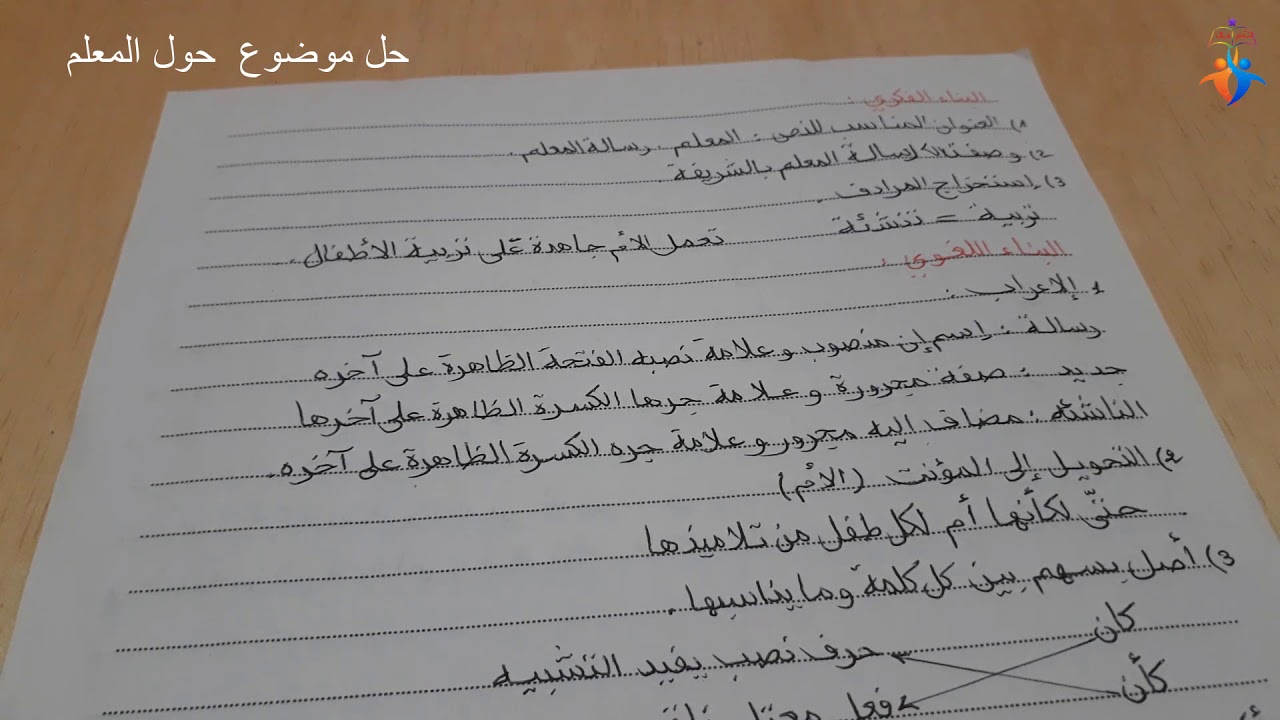 حل موضوع حول المعلم
البناء الفكري :
1) العنوان المناسب للنص : المعلم . رسالة المعلم .
2) وصفت رسالة المعلم بالشريفة .
3) إستخراج المرادف .
تربية = تنشئة تعمل الأم جاهدة على تربية الأطفال .
البناء اللغوي :
1 الإعراب :
رسالة : إسم إن منصوب وعلامة نصبه الفتحة الظاهرة على آخره
جديد : صفة مجرورة وعلامة جرها الكسرة الظاهرة على آخرها
الناشئة : مضاف إليه مجرور وعلامة جره الكسرة الظاهرة على آخره .
2) التحويل إلى المؤنث (الأم)
حتّى لكأنها أم لكل طفل من تلاميذها
3) أصل بسهم بين كل كلمة وما يناسبها .
كان
حرف نصب يفيد التشبيه
كأن
فعل